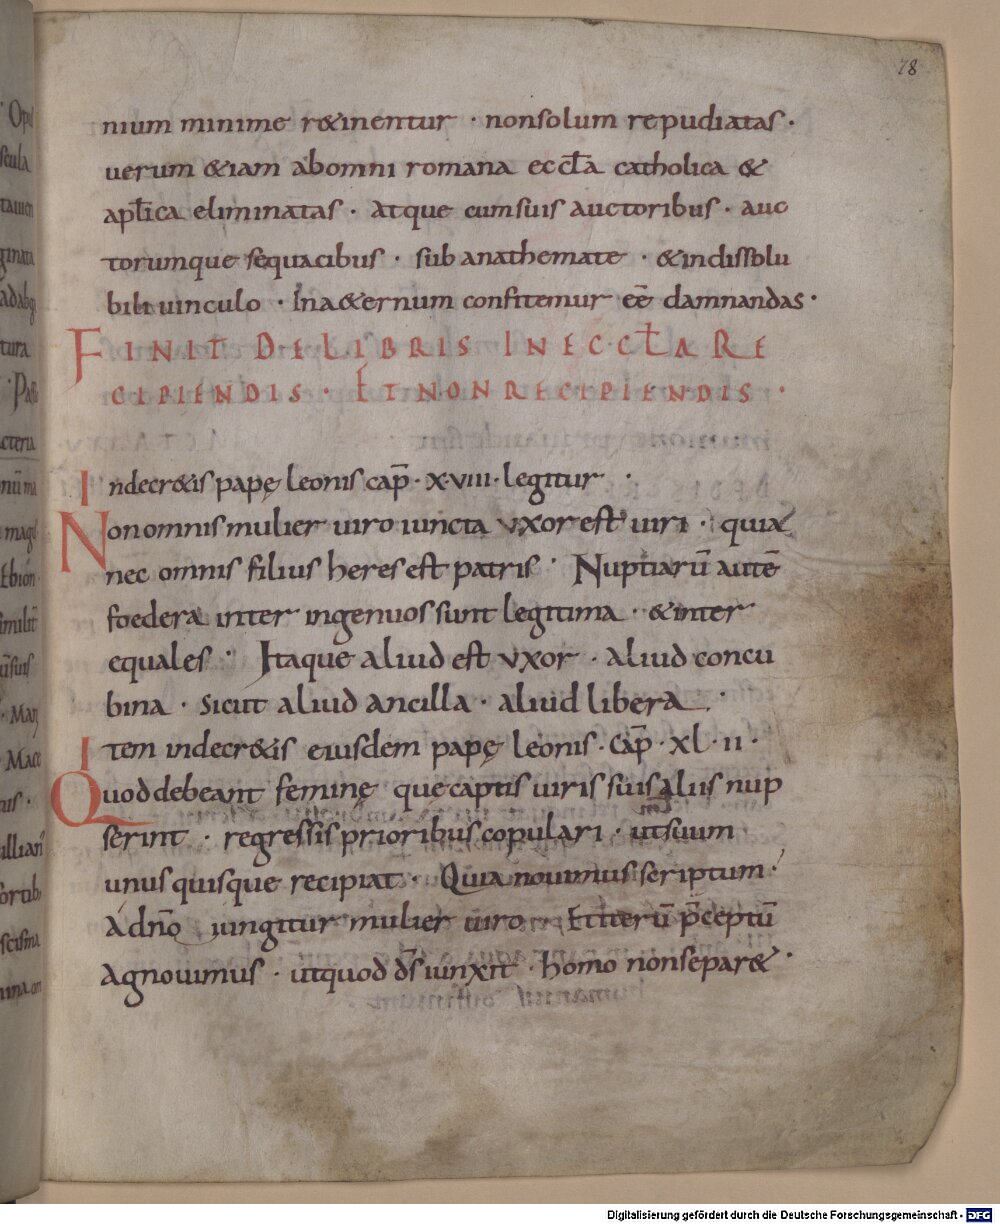 78
nium minime r&inentur · nonsolum repudiatas ·
uerum &iam abomni romana eccl̄a catholica &
apl̄ica eliminatas · atque cumsuis auctoribus · auc
torumque sequacibus · sub anathemate · &indissolu
bili uinculo · Ina&ernum confitemur eē damnandas ·
FINIT DE LIBRIS IN ECCL̄A RE
CIPIENDIS · ET NON RECIPIENDIS ·
Indecr&is papę leonis cap̄ · X·VIII · legitur ·
Nonomnis mulier uiro iuncta uxor est uiri · quia
nec omnis filius heres est patris · Nuptiarū autē
foedera inter ingenuos sunt legitima · &inter
equales · Itaque aliud est uxor · aliud concu
bina · sicut aliud ancilla · aliud libera ·
Item indecr&is eiusdem papę leonis · cap̄ · XL·II ·
Quod debeant feminę que captis uiris suis aliis nup
serint · regressis prioribus copulari · ut suum
unusquisque recipiat · Quia nouimus scriptum ·
Adn̄o iungitur mulier uiro · Et iterū p̄ceptū
agnouimus · utquod d̄s iunxit · homo non separ& ·
Digitalisierung gefördert durch die Deutsche Forschungsgemeinschaft - DFG